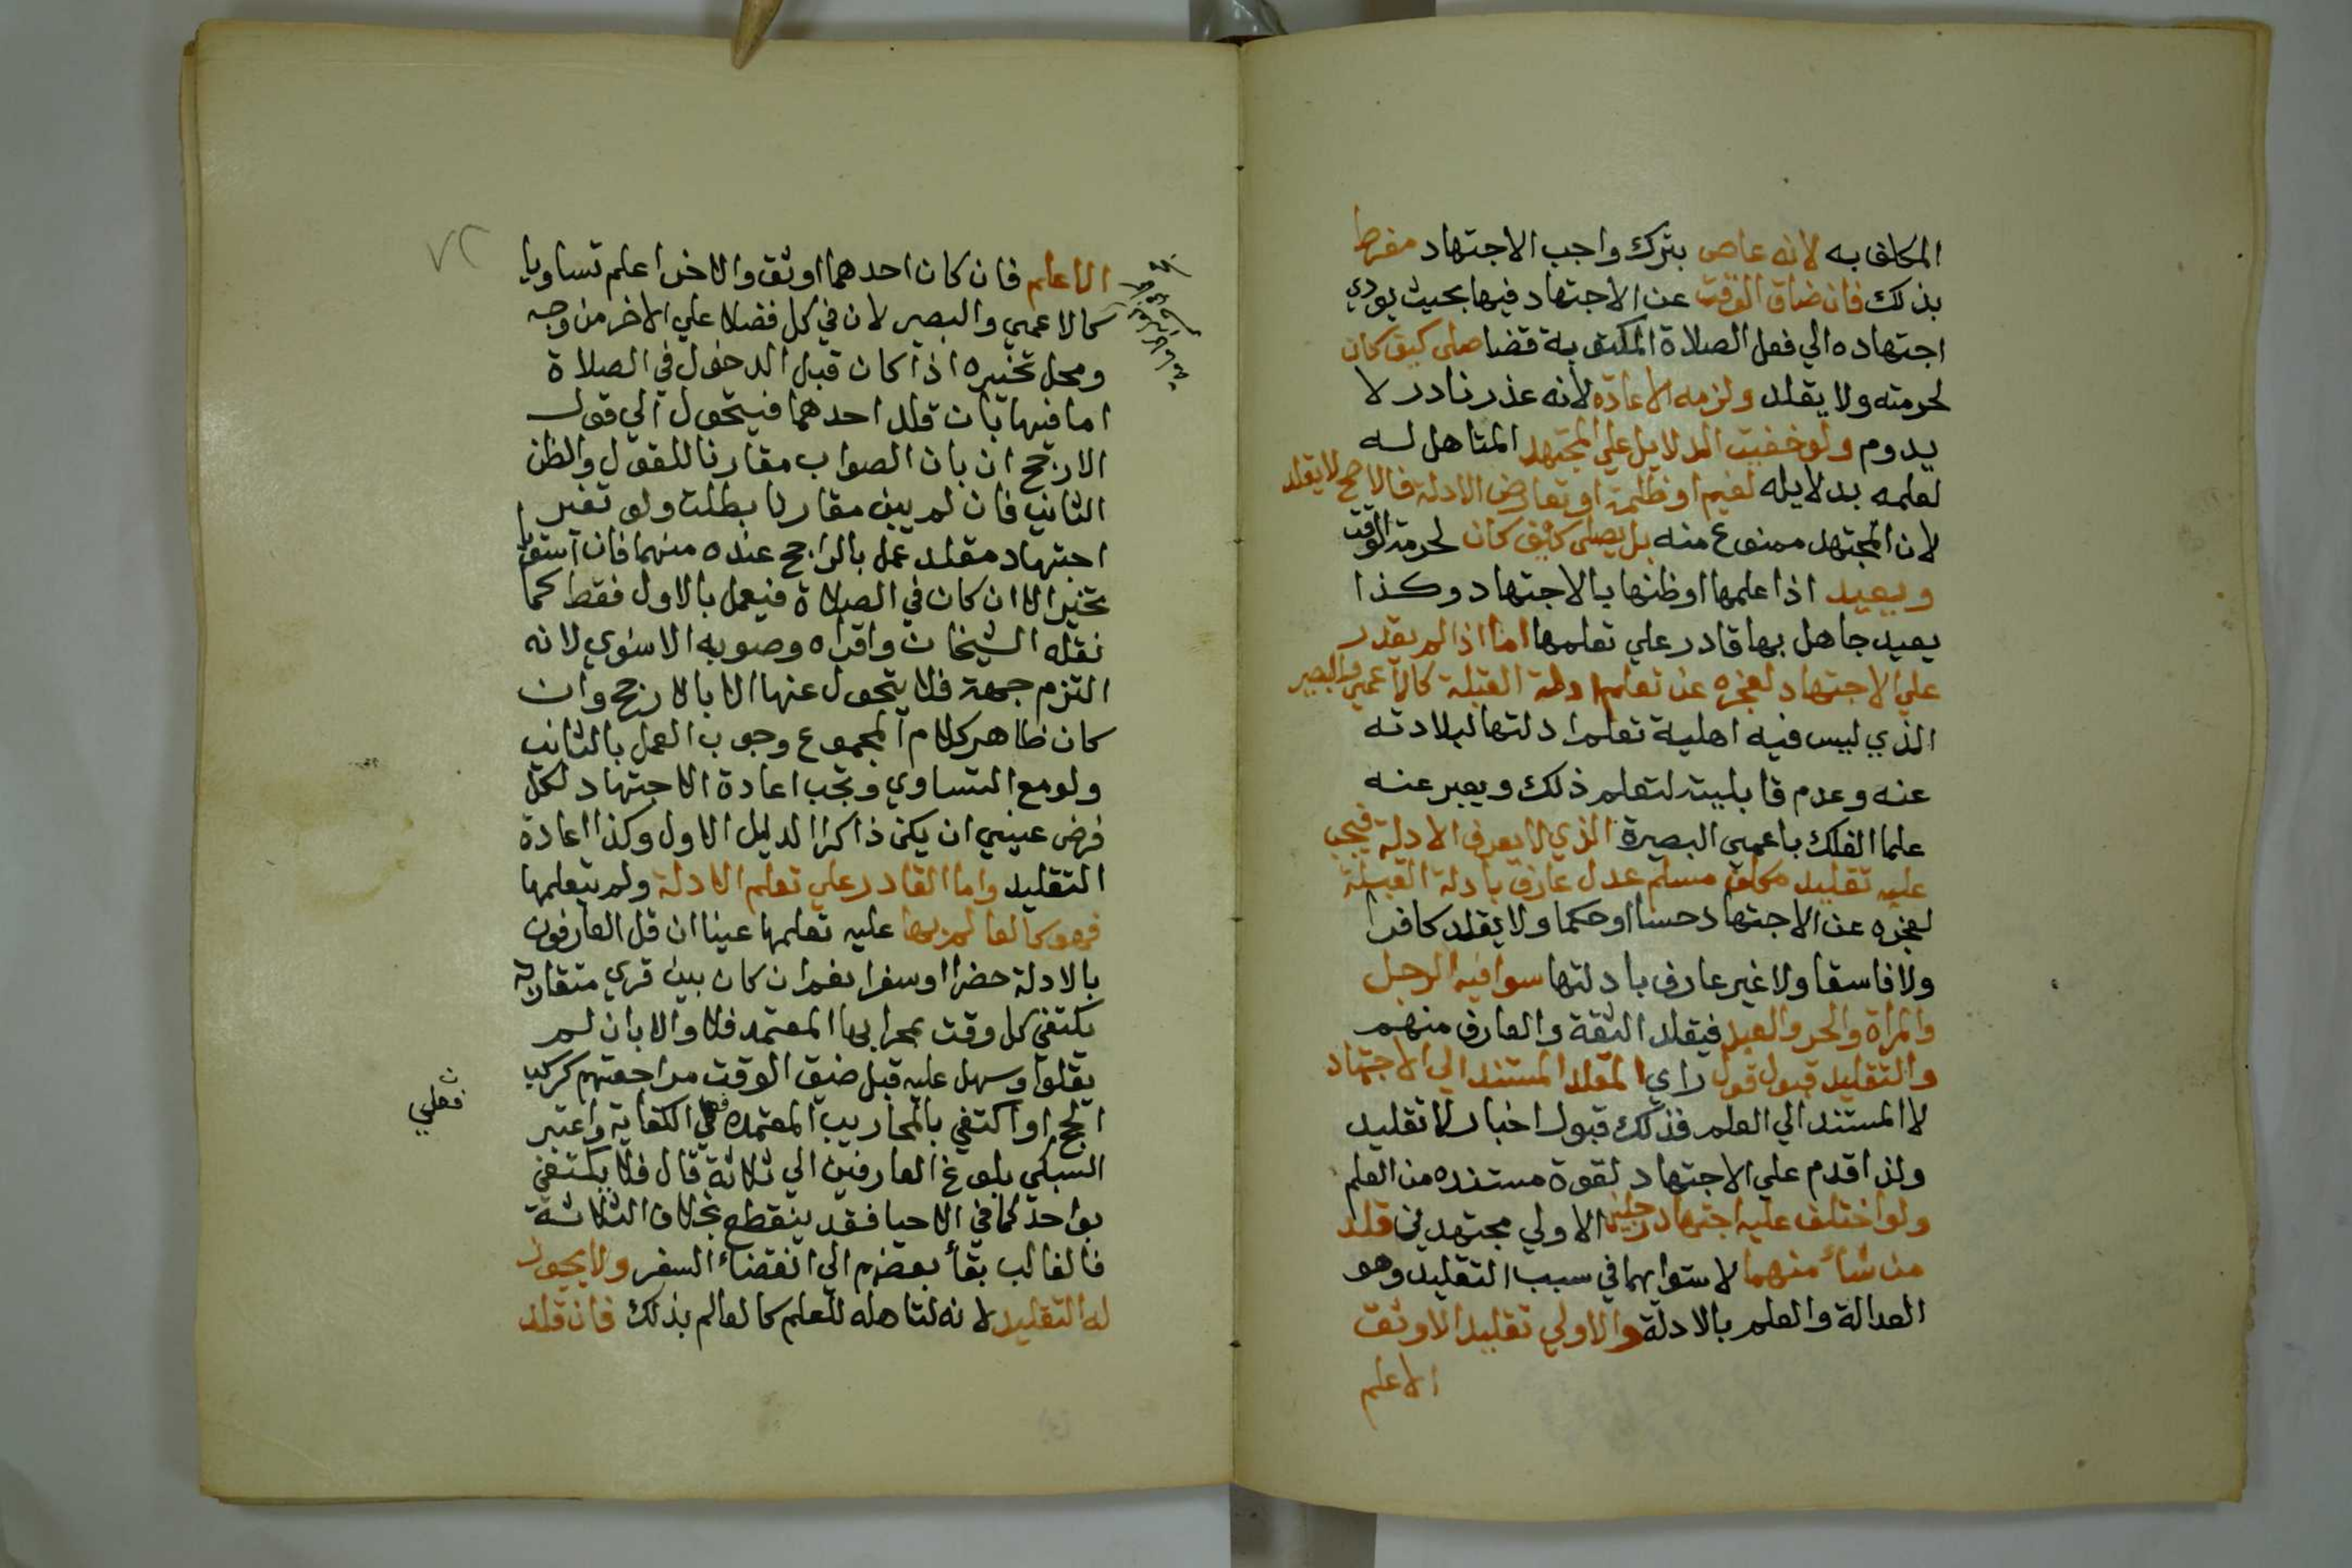 المكلف به لانه عاص بترك واجب الاجتهاد مفرط
بذلك فان ضاق الوقت عن الاجتهاد فيها بحيث يودي
اجتهاده الي فعل الصلاة المكتوبة قضا صلى كيف كان
لحرمته ولا يقلد ولزمه الاعادة لانه عذر نادر لا
يدوم ولو خفيت الدلايل علي المجتهد المتاهل له
لعلمه بدلايله لغيم او ظلمة او تعارض الادلة فالاصح لا يقلد
لان المجتهد ممنوع منه بل يصلى كيف كان لحرمة الوقت
ويعيد اذا علمها او ظنها بالاجتهاد وكذا
يعيد جاهل بها قادر علي تعلمها اما اذا لم يقدر
علي الاجتهاد لعجزه عن تعلم ادلة القبلة كالاعمي والبصير
الذي ليس فيه اهلية تعلم ادلتها لبلادته
عنه وعدم قابليته لتعلم ذلك ويعبر عنه
علما الفلك باعمي البصيرة الذي لا يعرف الادلة فيجب
عليه تقليد مكلف مسلم عدل عارف بادلة القبلة
لعجزه عن الاجتهاد حسا او حكما ولا يقلد كافرا
ولا فاسقا ولا غير عارف بادلتها سوا فيه الرجل
والمراة والحر والعبد فيقلد الثقة والعارف منهم
والتقليد قبول قول راي المقلد المستند الي الاجتهاد
لا المستند الي العلم فذلك قبول اخبار لا تقليد
ولذا قدم علي الاجتهاد لقوة مستنده من العلم
ولو اختلف عليه اجتهاد رجلين الاولي مجتهدين قلد
من شاء منهما لاستوايهما في سبب التقليد وهو
العدالة والعلم بالادلة والاولي تقليد الاوثق
الاعلم
الاعلم فان كان احدهما اوثق والاخر اعلم تساويا
كالاعمي والبصير لان في كل فضلا علي الاخر من وجه
ومحل تخييره اذا كان قبل الدخول في الصلاة
اما فيها بان قلد احدهما فيتحول الي قول
الارجح ان بان الصواب مقارنا للقول والظن
الثاني فان لم يبن مقارنا بطلت ولو تغير
اجتهاد مقلد عمل بالراجح عنده منهما فان استويا
تخير الا ان كان في الصلاة فيعمل بالاول فقط كما
نقله الشيخان واقراه وصوبه الاسنوي لانه
التزم جهة فلا يتحول عنها الا بالارجح وان
كان ظاهر كلام المجموع وجوب العمل بالثاني
ولو مع التساوي وتجب اعادة الاجتهاد لكل
فرض عيني ان يكن ذاكرا الدليل الاول وكذا اعادة
التقليد واما القادر علي تعلم الادلة ولم يتعلمها
فهو كالعالم بها عليه تعلمها عينا ان قل العارفون
بالادلة حضرا او سفرا نعم ان كان بين قري متقاربة
يكتفي كل وقت بمحرابها المعتمد فلا والا بان لم
يقلوا وسهل عليه قبل ضيق الوقت مراجعتهم كركب
الحج او اكتفي بالمحاريب المعتمدة فعلي الكفاية واعتبر
فعلي
السبكي بلوغ العارفين الي ثلاثة قال فلا يكتفي
بواحد كما في الاحيا فقد ينقطع بخلاف الثلاثة
فالغالب بقأ بعضهم الي انقضاء السفر ولا يجوز
له التقليد لانه لتاهله للعلم كالعالم بذلك فان قلد